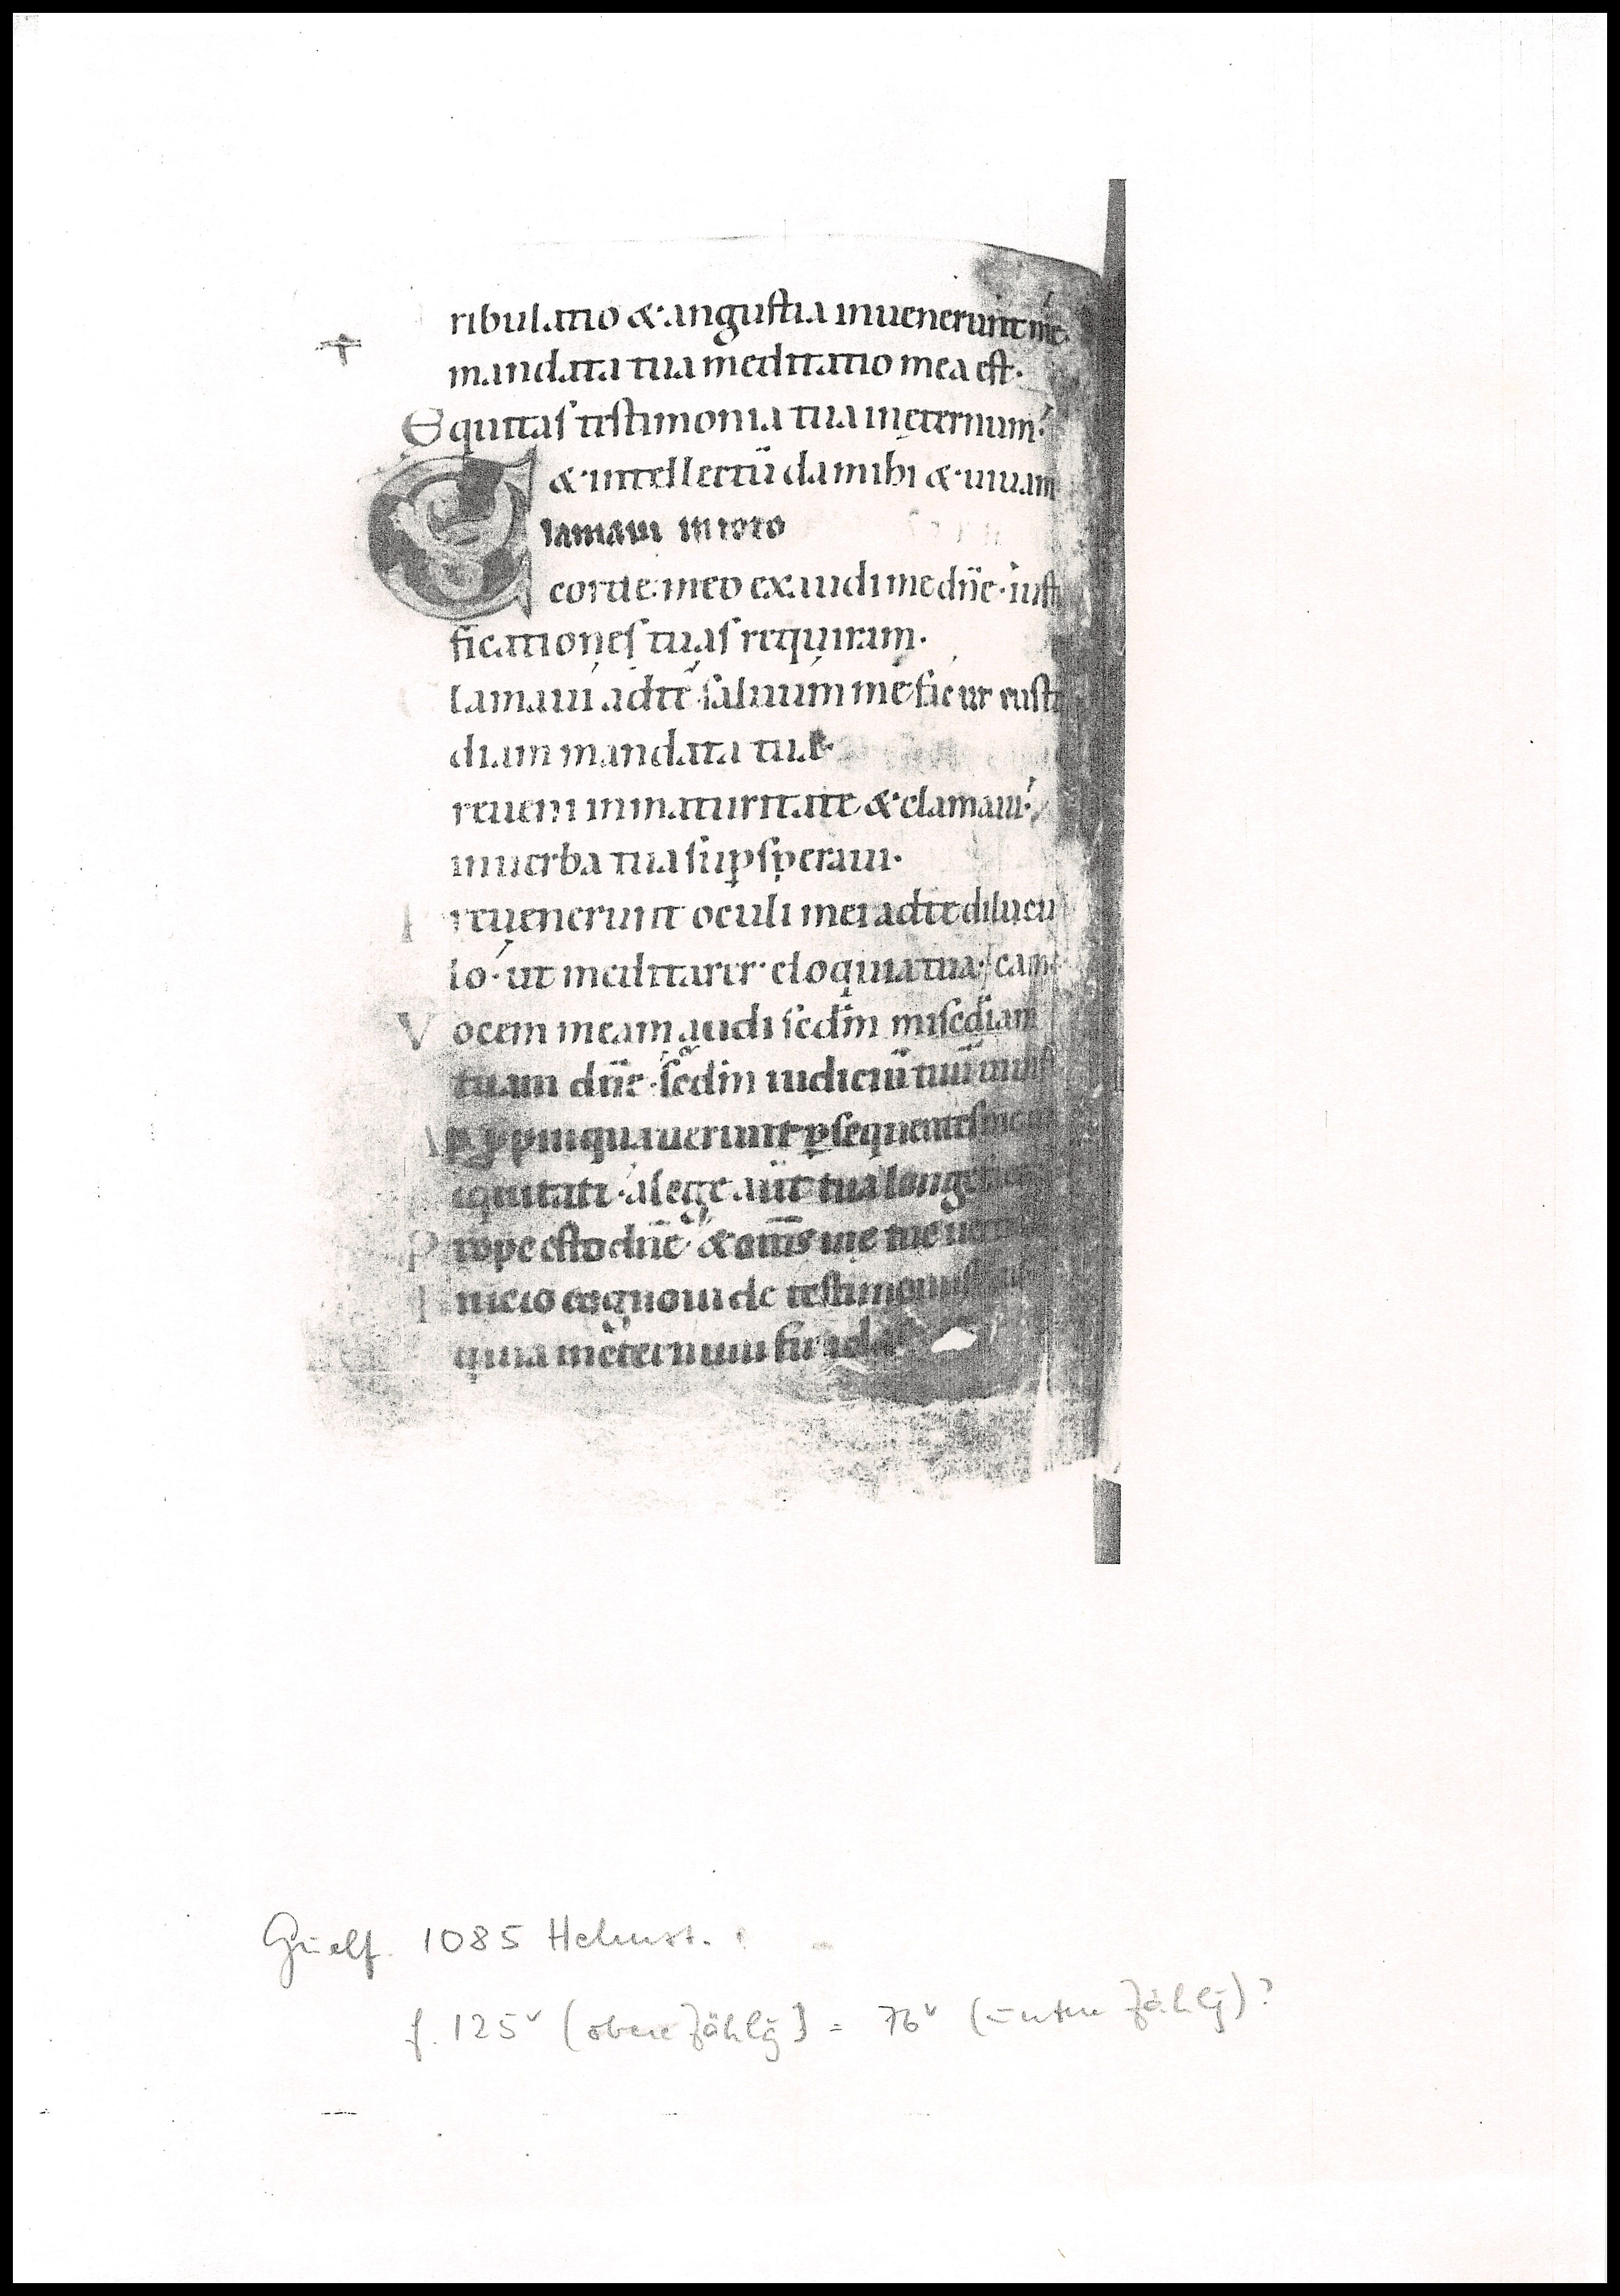 ribulatio & angustia inuenerunt me
mandata tua meditatio mea est.
Equitas testimonia tua ineternum
& intellectū da mihi & uiuam
Clamaui in toto
corde meo exaudi me dn̄e iusti
ficationes tuas requiram.
lamaui ad te saluum me fac ut custo
diam mandata tua.
reueni inmaturitate & clamaui
inuerba tua supsperaui.
P reuenerunt oculi mei ad te dilucu
lo ut meditarer eloquia tua
V ocem meam audi scdm misc̄diam
tuam dn̄e scdm iudiciū tuū
Appinquauerunt psequentes me
iquitati a lege aūt tua longe
P rope esto dn̄e & om̄s uie tue
I nicio cognoui de testimoniis
quia in eternum
Guelf. 1085 Helmst.
f. 125v (obere Zählg) = 76v (untere Zählg)?